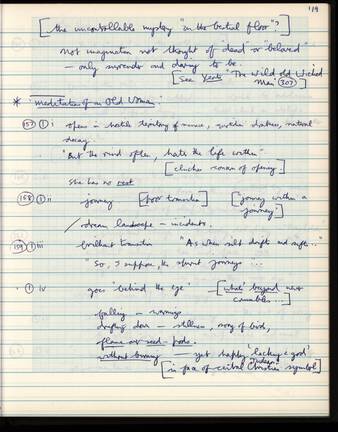 119
[the uncontrollable mystery "on the bestial floor"?]
Not imagination not thought of dead or "beloved"
– only surrender and daring to be.
[see Yeats "The Wild Old Wicked
Man" (307)]
* "Meditation of an Old Woman"
(157) (1) i opens in hostile territory of menace, natural
decay.
"But the mind often, hates the life within"
[cliches of opening]
She has no rest
(158) (1) ii journey [poor transition] ["journey within a
journey"]
/ dream landscape – incidents.
(159) (1) iii brilliant transition "As when silt drifts and sifts..."
"So, I suppose, the spirit journeys ...
(1) iv goes "behind the eye" – [what's beyond
falling –
drifting down – stillness, song of bird,
flame or seed-pods.
without burning – yet happy "lacking a god"
[in spite of central Christian symbol]